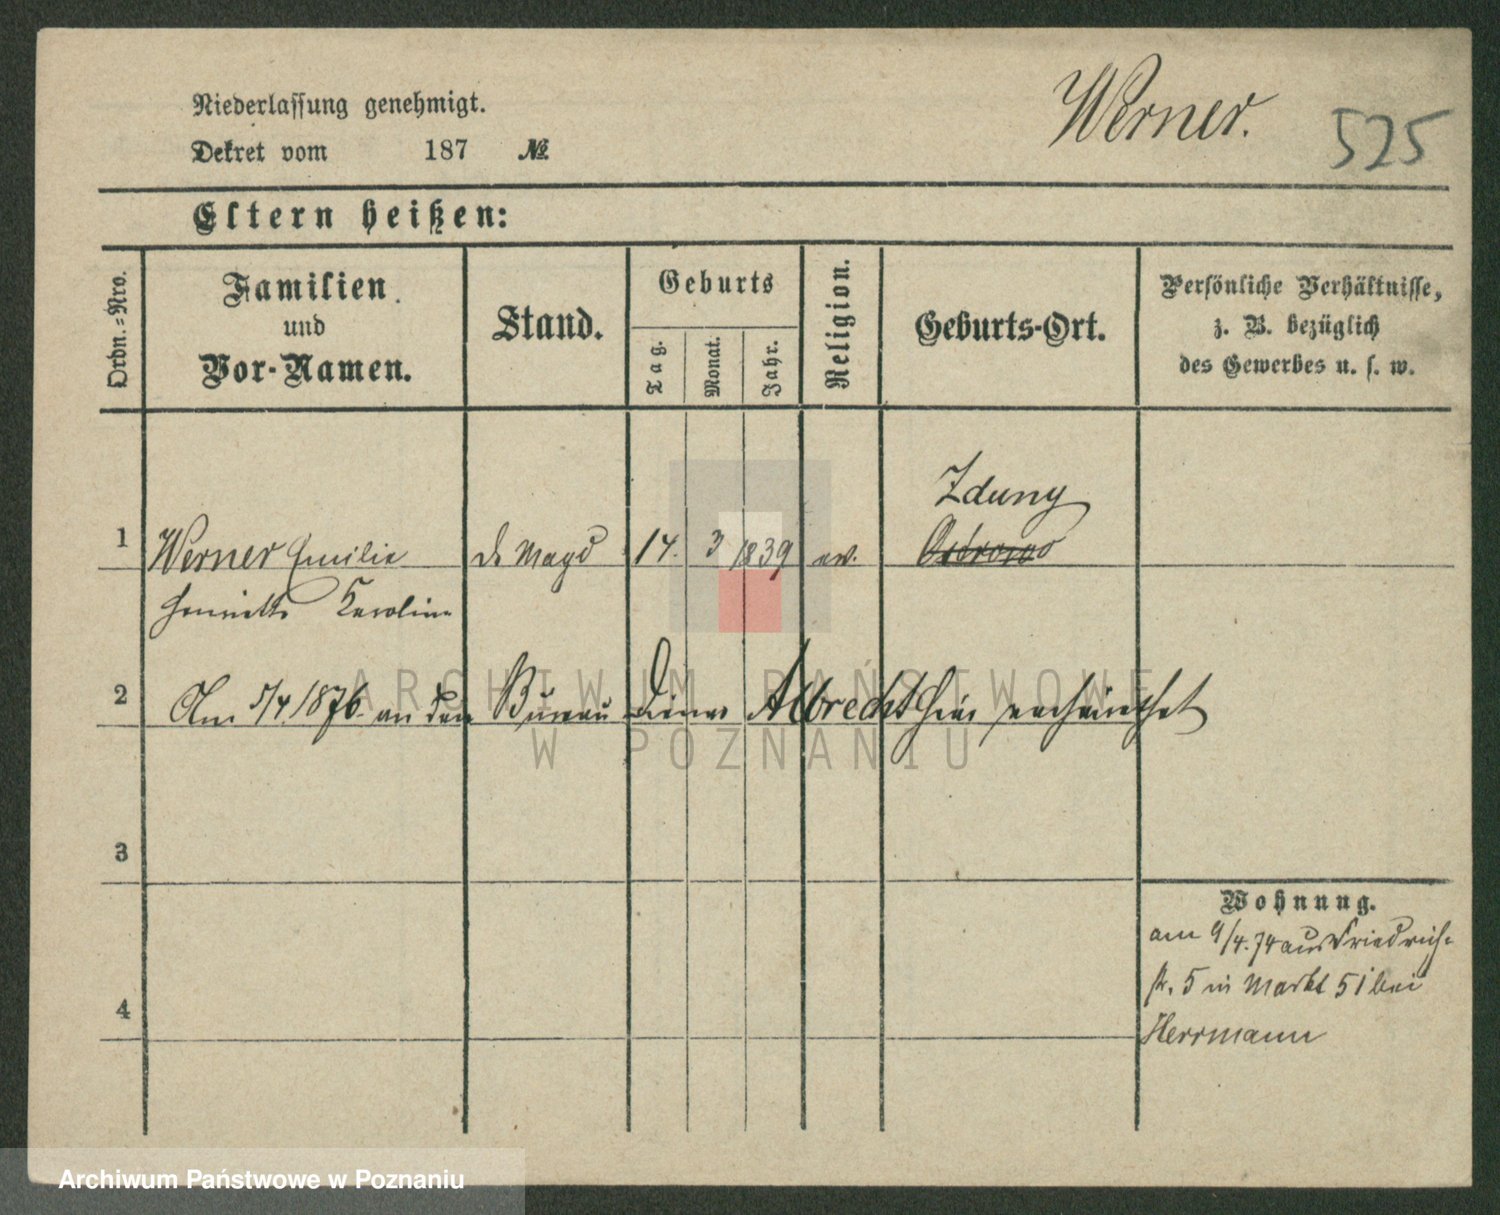 Niederlassung genehmigt.
Dekret vom 187 №
Werner.
525
Eltern heißen:
Ordn.-Nro.
Familien
und
Vor-Namen.
Stand.
Geburts
Tag.
Monat.
Jahr.
Religion.
Geburts-Ort.
Persönliche Verhältnisse,
z. B. bezüglich
des Gewerbes u. s. w.
Zduny
1 Werner Emilie d. Magd 14. 3 1839 ev. Ostrowo
Henriette Karoline
2 Am 5/4 1876 an den Bureau Diener Albrecht hier verheirathet
3
Wohnung.
am 9/4.74 aus Friedrich-
str. 5 in Markt 51 bei
4
Herrmann
ARCHIWUM PAŃSTWOWE
W POZNANIU
Archiwum Państwowe w Poznaniu